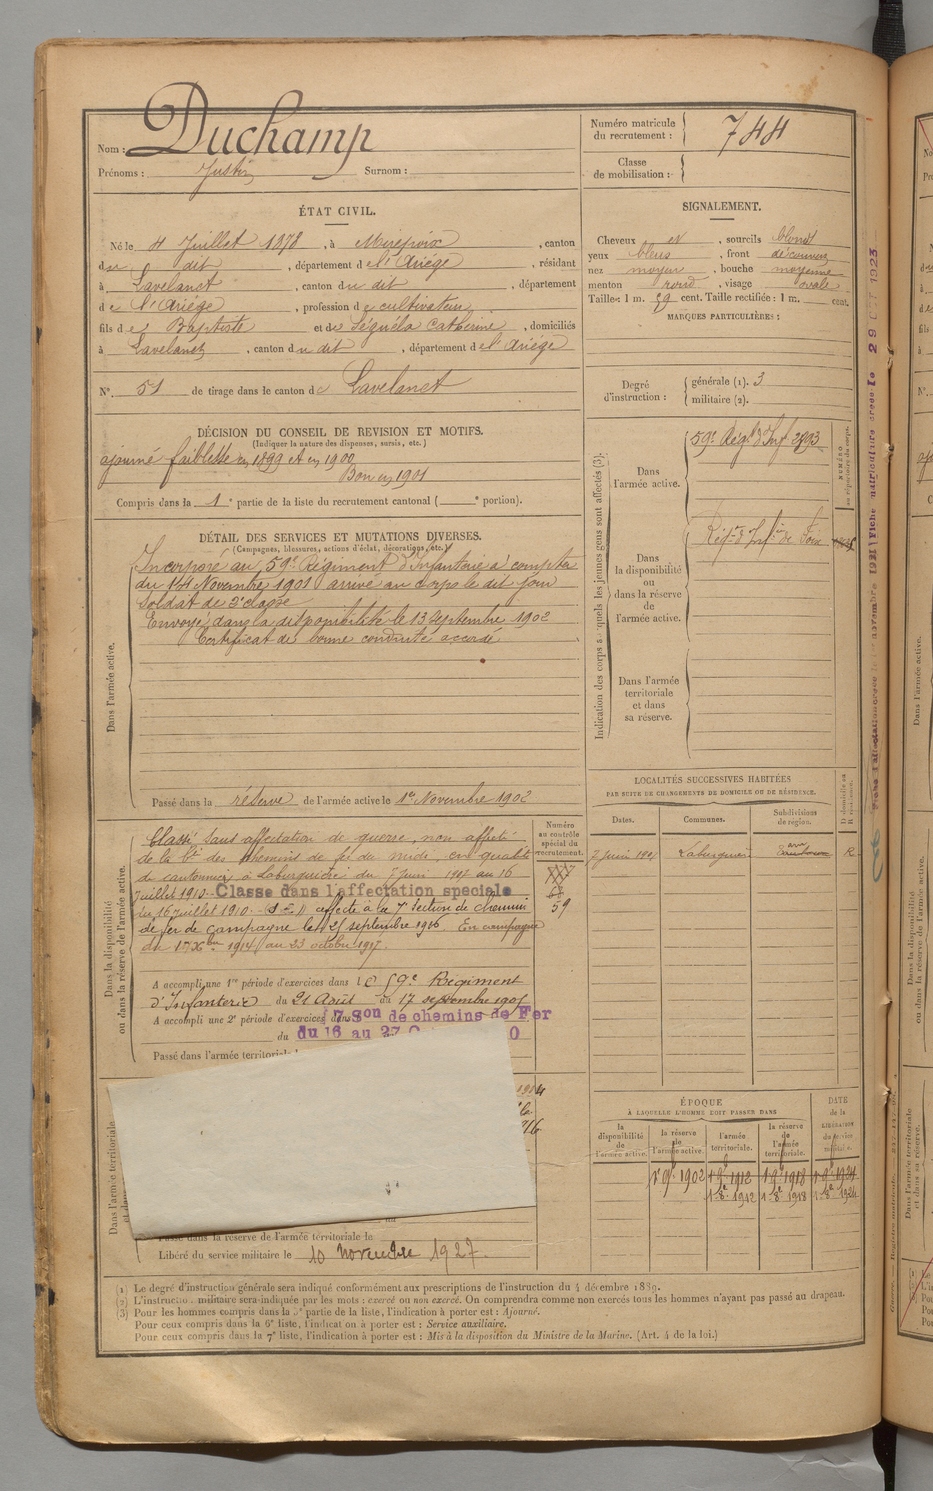 Nom : Duchamp
Prénoms : Justin Surnom :
Numéro matricule du recrutement : 744
Classe de mobilisation :
ÉTAT CIVIL.
Né le 4 Juillet 1878, à Mirepoix, canton
du dit, département de l'Ariège, résidant
à Lavelanet, canton du dit, département
de l'Ariège, profession de cultivateur
fils de Baptiste et de Séguéla Catherine, domiciliés
à Lavelanet, canton du dit, département de l'Ariège
N° 51 de tirage dans le canton de Lavelanet
SIGNALEMENT.
Cheveux et, sourcils blonds
yeux bleus, front découvert
nez moyen, bouche moyenne
menton rond, visage ovale
Taille : 1 m. 59 cent. Taille rectifiée : 1 m. cent.
MARQUES PARTICULIÈRES :
Degré d'instruction : générale (1). 3
militaire (2).
DÉCISION DU CONSEIL DE REVISION ET MOTIFS.
(Indiquer la nature des dispenses, sursis, etc.)
ajourné faiblesse en 1899 et en 1900
Bon en 1901
Compris dans la 1e partie de la liste du recrutement cantonal ( e portion).
DÉTAIL DES SERVICES ET MUTATIONS DIVERSES.
(Campagnes, blessures, actions d'éclat, décorations, etc.)
Dans l'armée active.
Incorporé au 59e Régiment d'Infanterie à compter
du 14 Novembre 1901 arrivé au corps le dit jour
soldat de 2e classe
Envoyé dans la disponibilité le 13 Septembre 1902
Certificat de bonne conduite accordé
Passé dans la réserve de l'armée active le 1er Novembre 1902
Indication des corps auxquels les jeunes gens sont affectés (3).
NUMÉRO au répertoire du corps.
Dans l'armée active.
59e Régt d'Inf 2893
Dans la disponibilité ou dans la réserve de l'armée active.
Régt d'Infie de Foix
Dans l'armée territoriale et dans sa réserve.
Dans la disponibilité ou dans la réserve de l'armée active.
Numéro au contrôle spécial du recrutement.
59
Classé sans affectation de guerre, non affecté
de la Cie des chemins de fer du midi, en qualité
de cantonnier à Laburguière du 7 juin 1907 au 16
juillet 1910. Classe dans l'affectation speciale
du 16 juillet 1910. affecté à la 7e section de chemin
de fer de campagne le 25 septembre 1906. En campagne
du 17 Xbre 1914 au 23 octobre 1917.
A accompli une 1re période d'exercices dans le 59e Régiment
d'Infanterie du 21 Août au 17 septembre 1905
A accompli une 2e période d'exercices dans 7 Son de chemins de Fer
du 16 au 27
Passé dans l'armée territoriale
Dans l'armée territoriale
Passé dans la réserve de l'armée territoriale le
Libéré du service militaire le 10 novembre 1927
LOCALITÉS SUCCESSIVES HABITÉES
PAR SUITE DE CHANGEMENTS DE DOMICILE OU DE RÉSIDENCE.
Dates. Communes. Subdivisions de région. D domicile ou R résidence.
7 juin 1907 Laburguière R
ÉPOQUE
À LAQUELLE L'HOMME DOIT PASSER DANS
DATE de la LIBÉRATION du service militaire.
la disponibilité de l'armée active.
la réserve de l'armée active.
l'armée territoriale.
la réserve de l'armée territoriale.
1 9bre 1902 1 9bre 1912 1 9bre 1918 1 9bre 1924
1 8bre 1912 1 8bre 1918 1 8bre 1924
(1) Le degré d'instruction générale sera indiqué conformément aux prescriptions de l'instruction du 4 décembre 1889.
(2) L'instruction militaire sera indiquée par les mots : exercé ou non exercé. On comprendra comme non exercés tous les hommes n'ayant pas passé au drapeau.
(3) Pour les hommes compris dans la 5e partie de la liste, l'indication à porter est : Ajourné.
Pour ceux compris dans la 6e liste, l'indication à porter est : Service auxiliaire.
Pour ceux compris dans la 7e liste, l'indication à porter est : Mis à la disposition du Ministre de la Marine. (Art. 4 de la loi.)